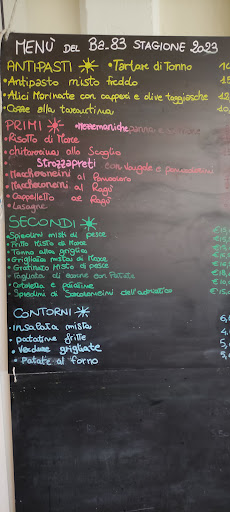 MENÙ DEL Ba-83 STAGIONE 2023
ANTIPASTI • Tartare di Tonno
• Antipasto misto freddo
• Alici Marinate con capperi e olive taggiasche
• Cozze alla tarantina
PRIMI panna e salmone
• Risotto di Mare
• chitarrina allo Scoglio
Strozzapreti con Vongole e pomodorini
• Maccheroncini al Pomodoro
• Maccheroncini al Ragù
• Cappelletto al Ragù
• Lasagne
SECONDI
• Spiedini misti di pesce
• Fritto Misto di Mare
• Tonno alla griglia
• Grigliata mista di Mare
• Gratinato misto di pesce
• Tagliata di con Patate
• Cotoletta e patatine
• Spiedini di dell'adriatico
CONTORNI
• insalata mista
• patatine fritte
• Verdure grigliate
• Patate al forno